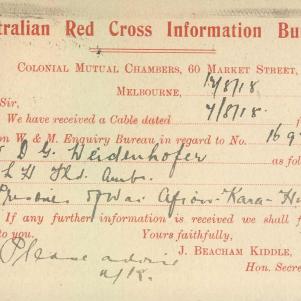 tralian Red Cross Information Bu
COLONIAL MUTUAL CHAMBERS, 60 MARKET STREET,
MELBOURNE, 18/8/18
Sir,
We have received a Cable dated 7/8/18. f
om W & M. Enquiry Bureau in regard to No. 169
D G. Weidenhofer
Fld. Amb.
Prisoner of War Afion-Kara-H
If any further information is received we shall f
Yours faithfully,
J. BEACHAM KIDDLE,
Hon. Secre
Please advise